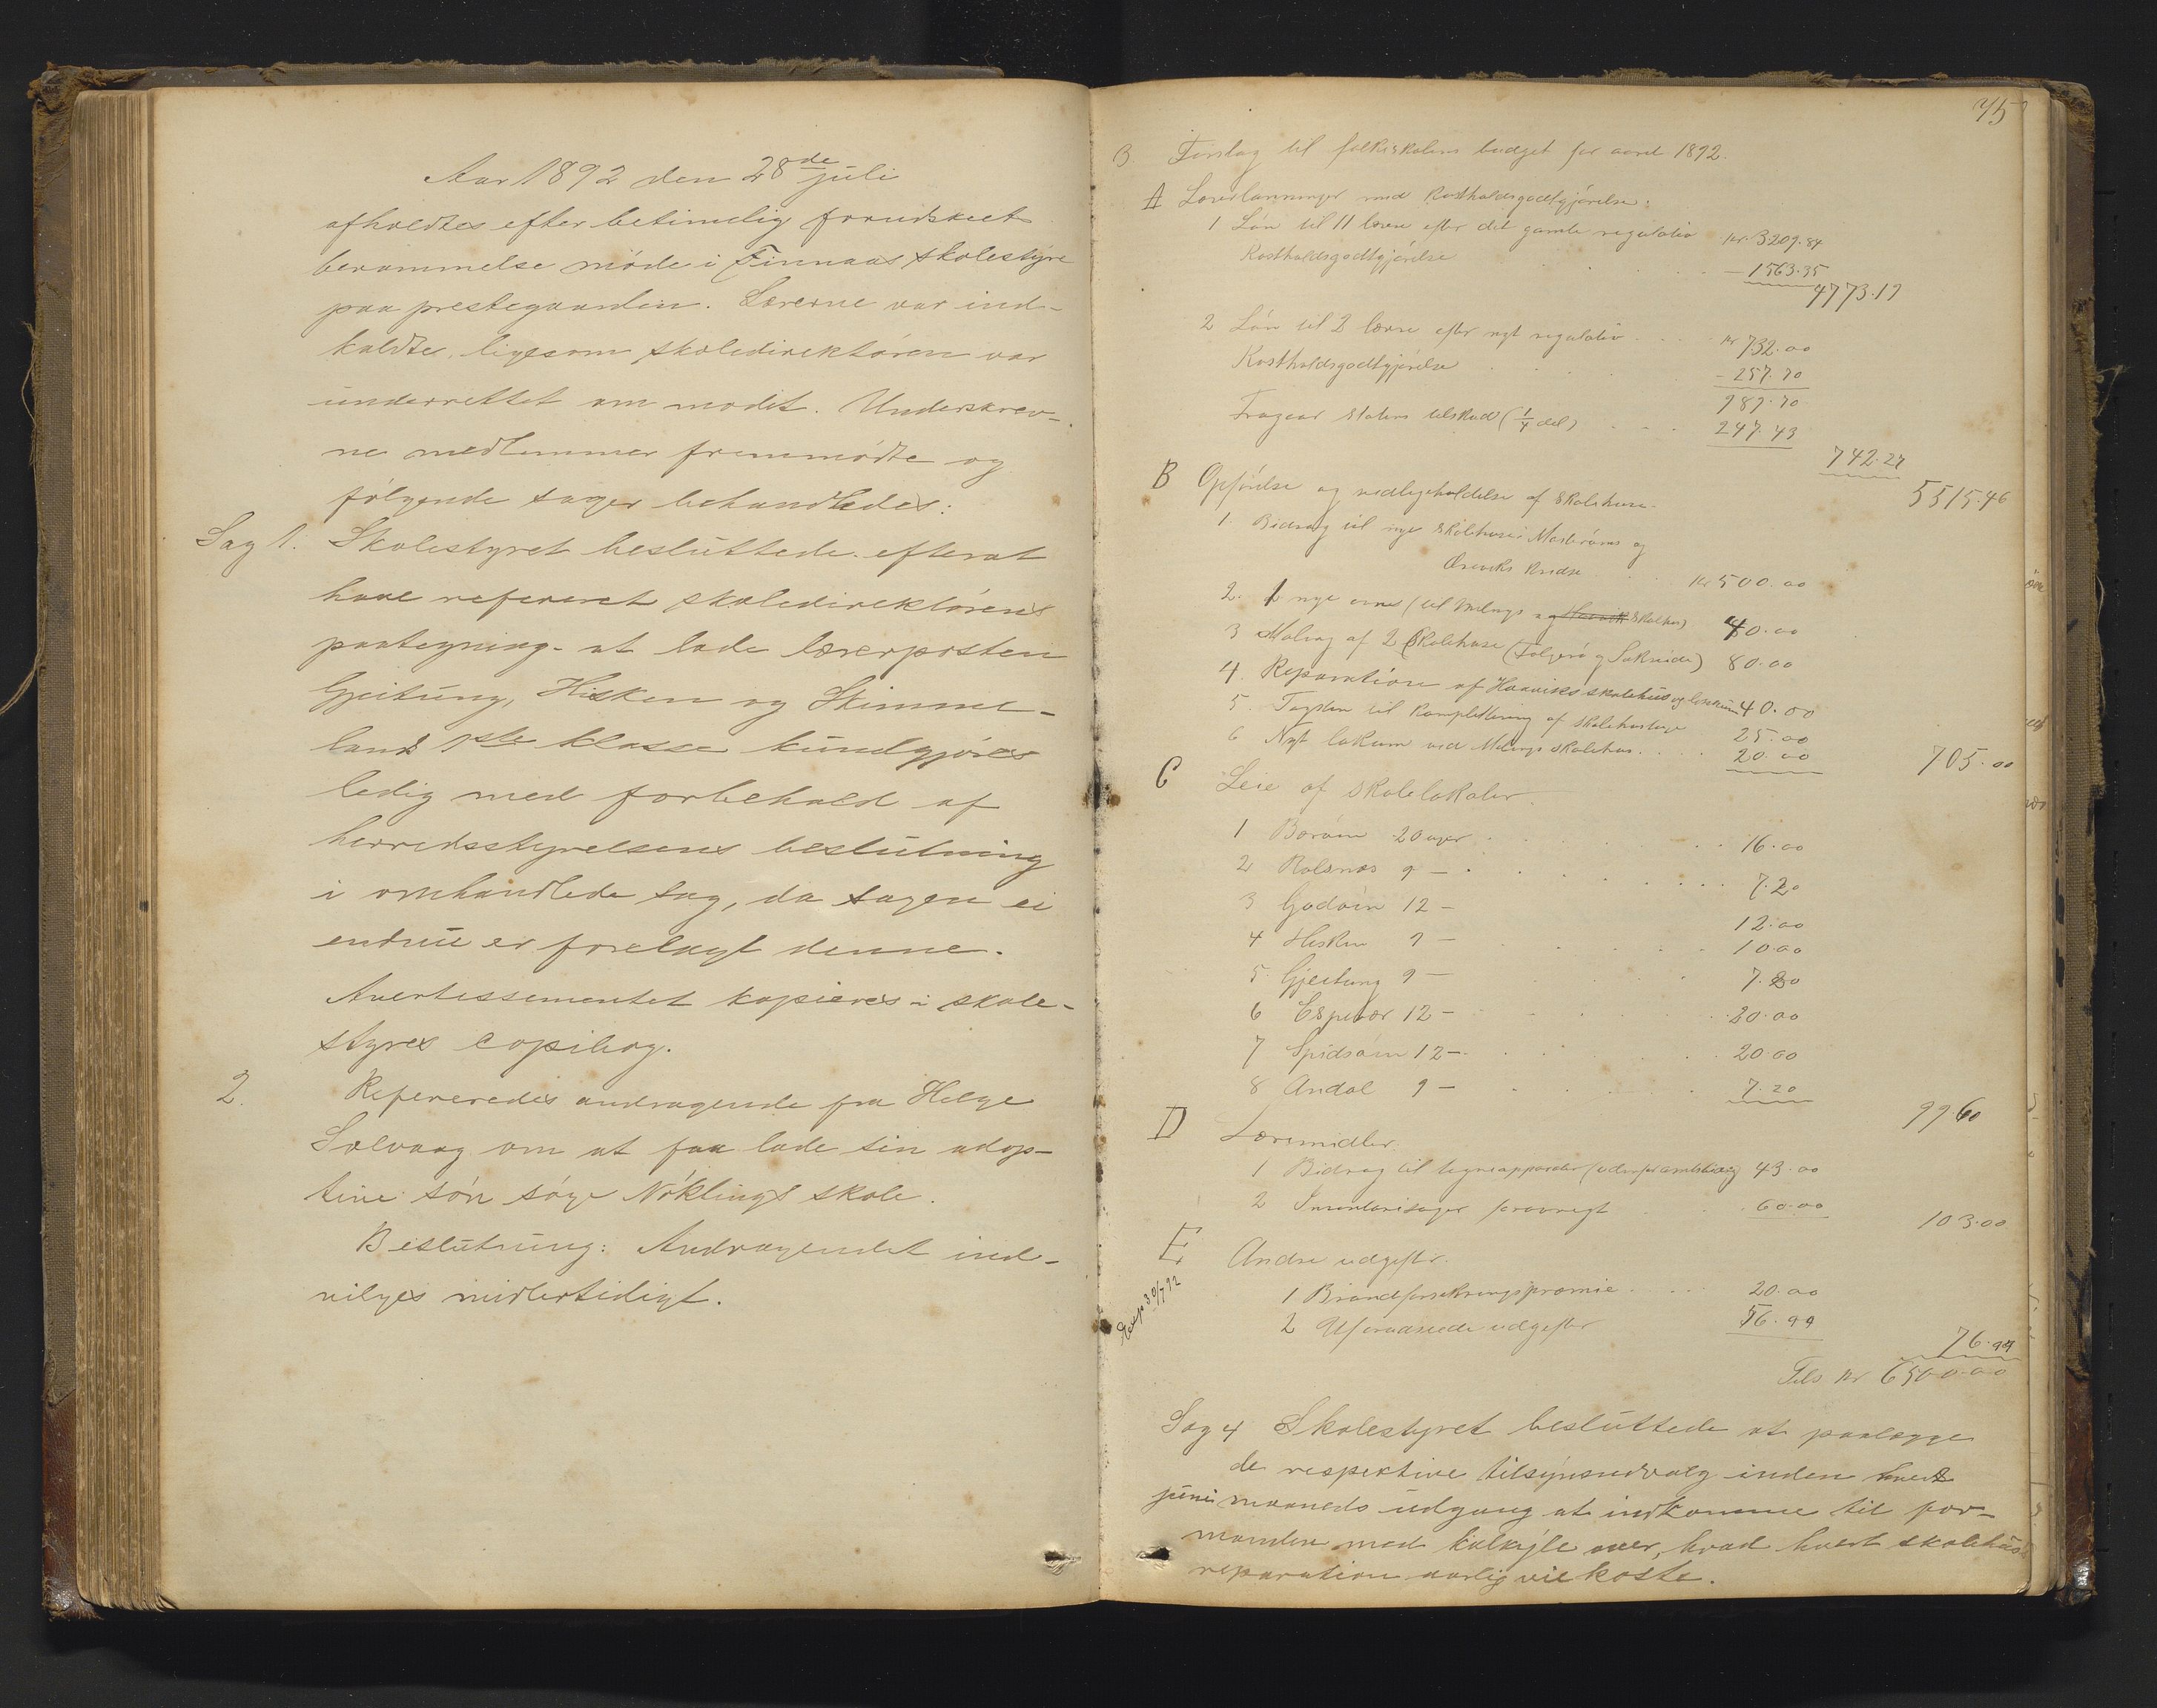 Aar 1892 den 28de juli
afholdtes efter betimelig forudskeet
berammelse møde i Finnaas skolestyre
paa prestegaarden. Lærerne var ind-
kaldte, ligesom skoledirektøren var
underrettet om mødet. Underskrev-
ne medlemmer fremmødte og
følgende sager behandledes:
Sag 1. Skolestyret besluttede efterat
have refereret skoledirektørens
paategning at lade lærerposten
Gjeitung, Hisken og Stimme-
land 1ste klasse kundgjøres
ledig med forbehold af
herredsstyrelsens beslutning
i omhandlede sag, da sagen ei
endnu er forelagt denne.
Avertissementet kopieres i skole-
styres copibog.
2. Refereredes andragende fra Helge
Sælvaag om at faa lade sin adop-
tive søn søge Nøklings skole.
Beslutning: Andragendet ind-
vilges midlertidigt.
75
3. Forslag til folkeskolens budget for aaret 1892.
A Lærerlønninger med Kostholdsgodtgjørelse:
1 Løn til 11 lærere efter det gamle regulativ kr. 3209.84
Kostholdsgodtgjørelse - 1563.35
4773.19
2 Løn til 2 lærere efter nyt regulativ kr 732.00
Kostholdsgodtgjørelse - 257.70
989.70
Fragaar statens tilskud (1/4 del) 247.43
742.27
5515.46
B Opførelse og vedligeholdelse af skolehuse.
1. Bidrag til nye skolehuse i Mosterøens og
Øreviks kredse kr 500.00
2. 1 nye ovne (til Mælings og Haavik skolehus) 40.00
3 Maling af 2 Skolehuse (Folgerø og Sakseide) 80.00
4. Reparation af Haaviks skolehus og 40.00
5. Tagsten til Komplettering af skolehustage 25.00
6 Nyt lokum ved Mælings skolehus. 20.00
705.00
C Leie af skolelokaler.
1 Børøen 20 uger 16.00
2 Rolsnæs 9 — 7.20
3 Godøen 12 — 12.00
4 Hisken 9 — 10.00
5. Gjeitung 9 — 7.20
6 Espevær 12 — 20.00
7 Spidsøen 12 — 20.00
8 Andal 9 — 7.20
99.60
D Læremidler.
1 Bidrag til tegneapparater (udenfor amtsbidrag) 43.00
2 Inventarisager forøvrigt 60.00
103.00
E Andre udgifter.
1 Brandforsikringspræmie 20.00
2 Uforudseede udgifter 56.94
76.94
Tils kr 6500.00
Exp 30/7 92
Sag 4 Skolestyret besluttede at paalægge
de respektive tilsynsudvalg inden hvert
juni maaneds udgang at indkomme til for-
manden med kalkyle over, hvad hvert skolehus
reparation aarlig vil koste.